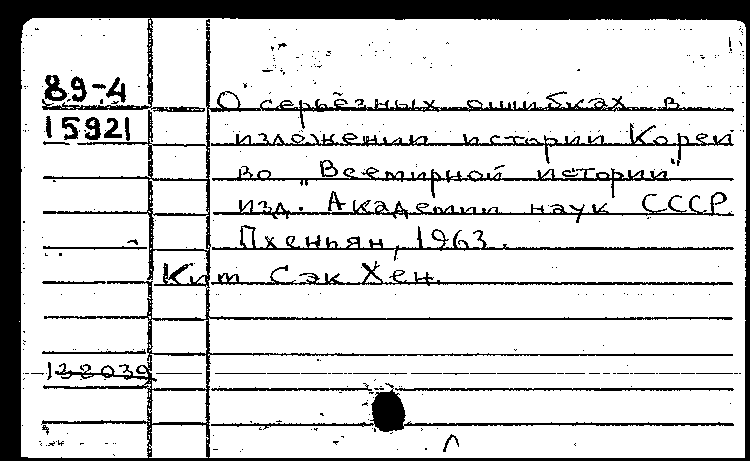 89-4
15921
О серьёзных ошибках в
изложении истории Кореи
во "Всемирной истории"
изд. Академии наук СССР
Пхеньян, 1963.
Ким Сэк Хен.
138039